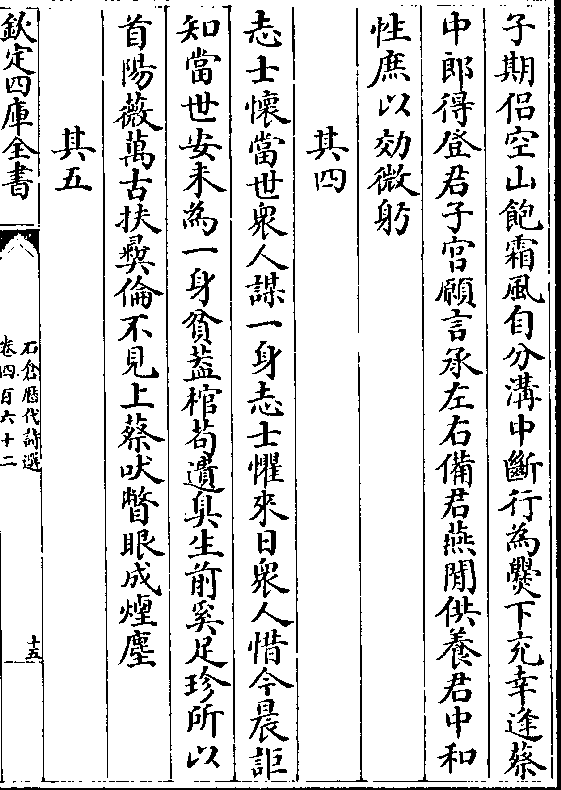 子期侣空山飽霜風自分溝中斷行為爨下充幸逢蔡
中郎得登君子宫願言承左右備君燕閒供養君中和
性庶以効微躬
其四
志士懷當世衆人謀一身志士懼來日衆人惜今晨詎
知當世安未為一身貧蓋棺茍遺臭生前奚足珍所以
首陽薇萬古扶彞倫不見上蔡吠瞥眼成煙塵
其五
欽定四庫全書
石倉歴代詩選
卷四百六十二
十五